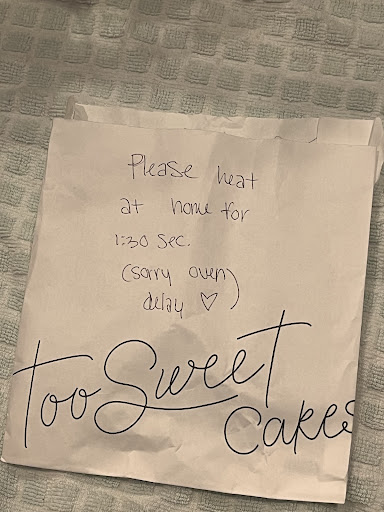 Please heat
at home for
1:30 sec.
(sorry oven
delay ♡)
too Sweet
Cakes